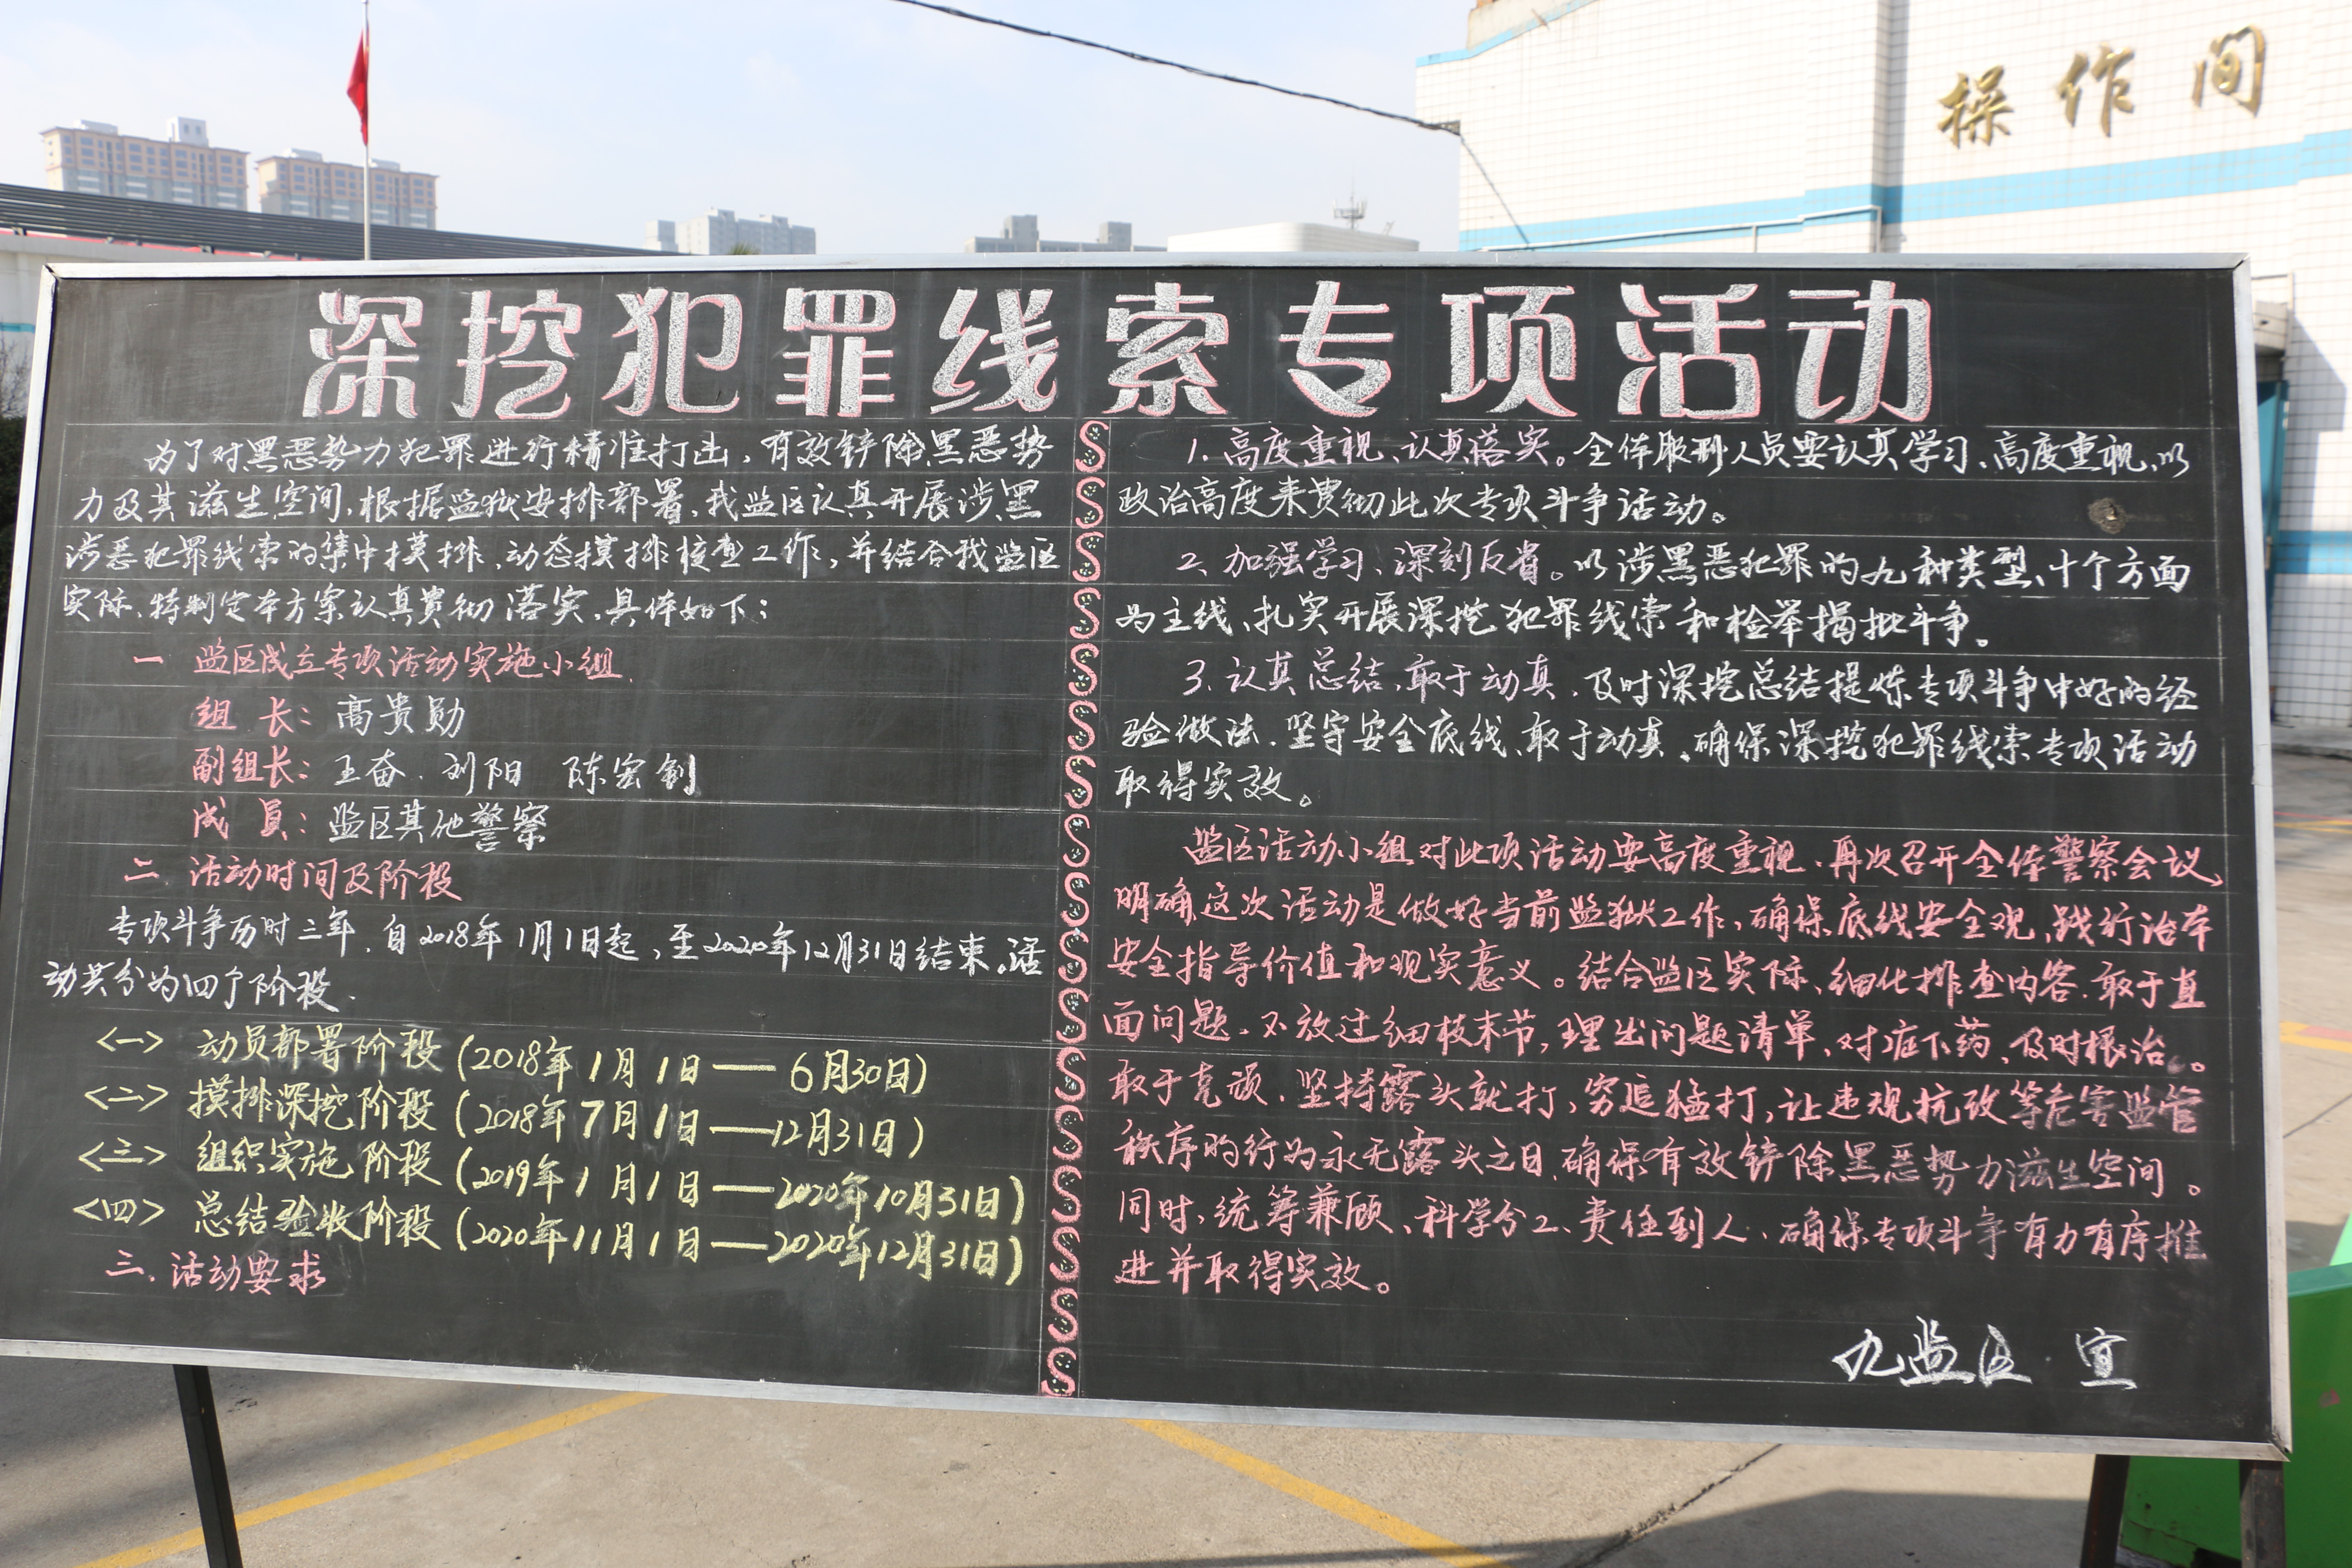 操作间
深挖犯罪线索专项活动
为了对黑恶势力犯罪进行精准打击,有效铲除黑恶势
力及其滋生空间,根据监狱安排部署,我监区认真开展涉黑
涉恶犯罪线索的集中摸排、动态摸排核查工作,并结合我监区
实际、特制定本方案认真贯彻落实,具体如下:
一 监区成立专项活动实施小组
组 长: 高贵勋
副组长: 王奋、刘阳 陈宏钊
成 员: 监区其他警察
二 活动时间及阶段
专项斗争历时三年,自2018年1月1日起,至2020年12月31日结束。活
动共分为四个阶段.
<一> 动员部署阶段(2018年1月1日——6月30日)
<二> 摸排深挖阶段(2018年7月1日——12月31日)
<三> 组织实施阶段(2019年1月1日——2020年10月31日)
<四> 总结验收阶段(2020年11月1日——2020年12月31日)
三、活动要求
1、高度重视、认真落实。全体服刑人员要认真学习、高度重视、以
政治高度来贯彻此次专项斗争活动。
2、加强学习、深刻反省。以涉黑恶犯罪的九种类型、十个方面
为主线、扎实开展深挖犯罪线索和检举揭批斗争。
3、认真总结,敢于动真,及时深挖总结提炼专项斗争中好的经
验做法、坚守安全底线、敢于动真、确保深挖犯罪线索专项活动
取得实效。
监区活动小组对此项活动要高度重视、再次召开全体警察会议、
明确这次活动是做好当前监狱工作,确保底线安全观,践行治本
安全指导价值和现实意义。结合监区实际、细化排查内容、敢于直
面问题、不放过细枝末节,理出问题清单,对症下药,及时根治。
敢于克顽、坚持露头就打,穷追猛打,让违规抗改等危害监管
秩序的行为永无露头之日,确保有效铲除黑恶势力滋生空间。
同时,统筹兼顾、科学分工、责任到人、确保专项斗争有力有序推
进并取得实效。
九监区·宣